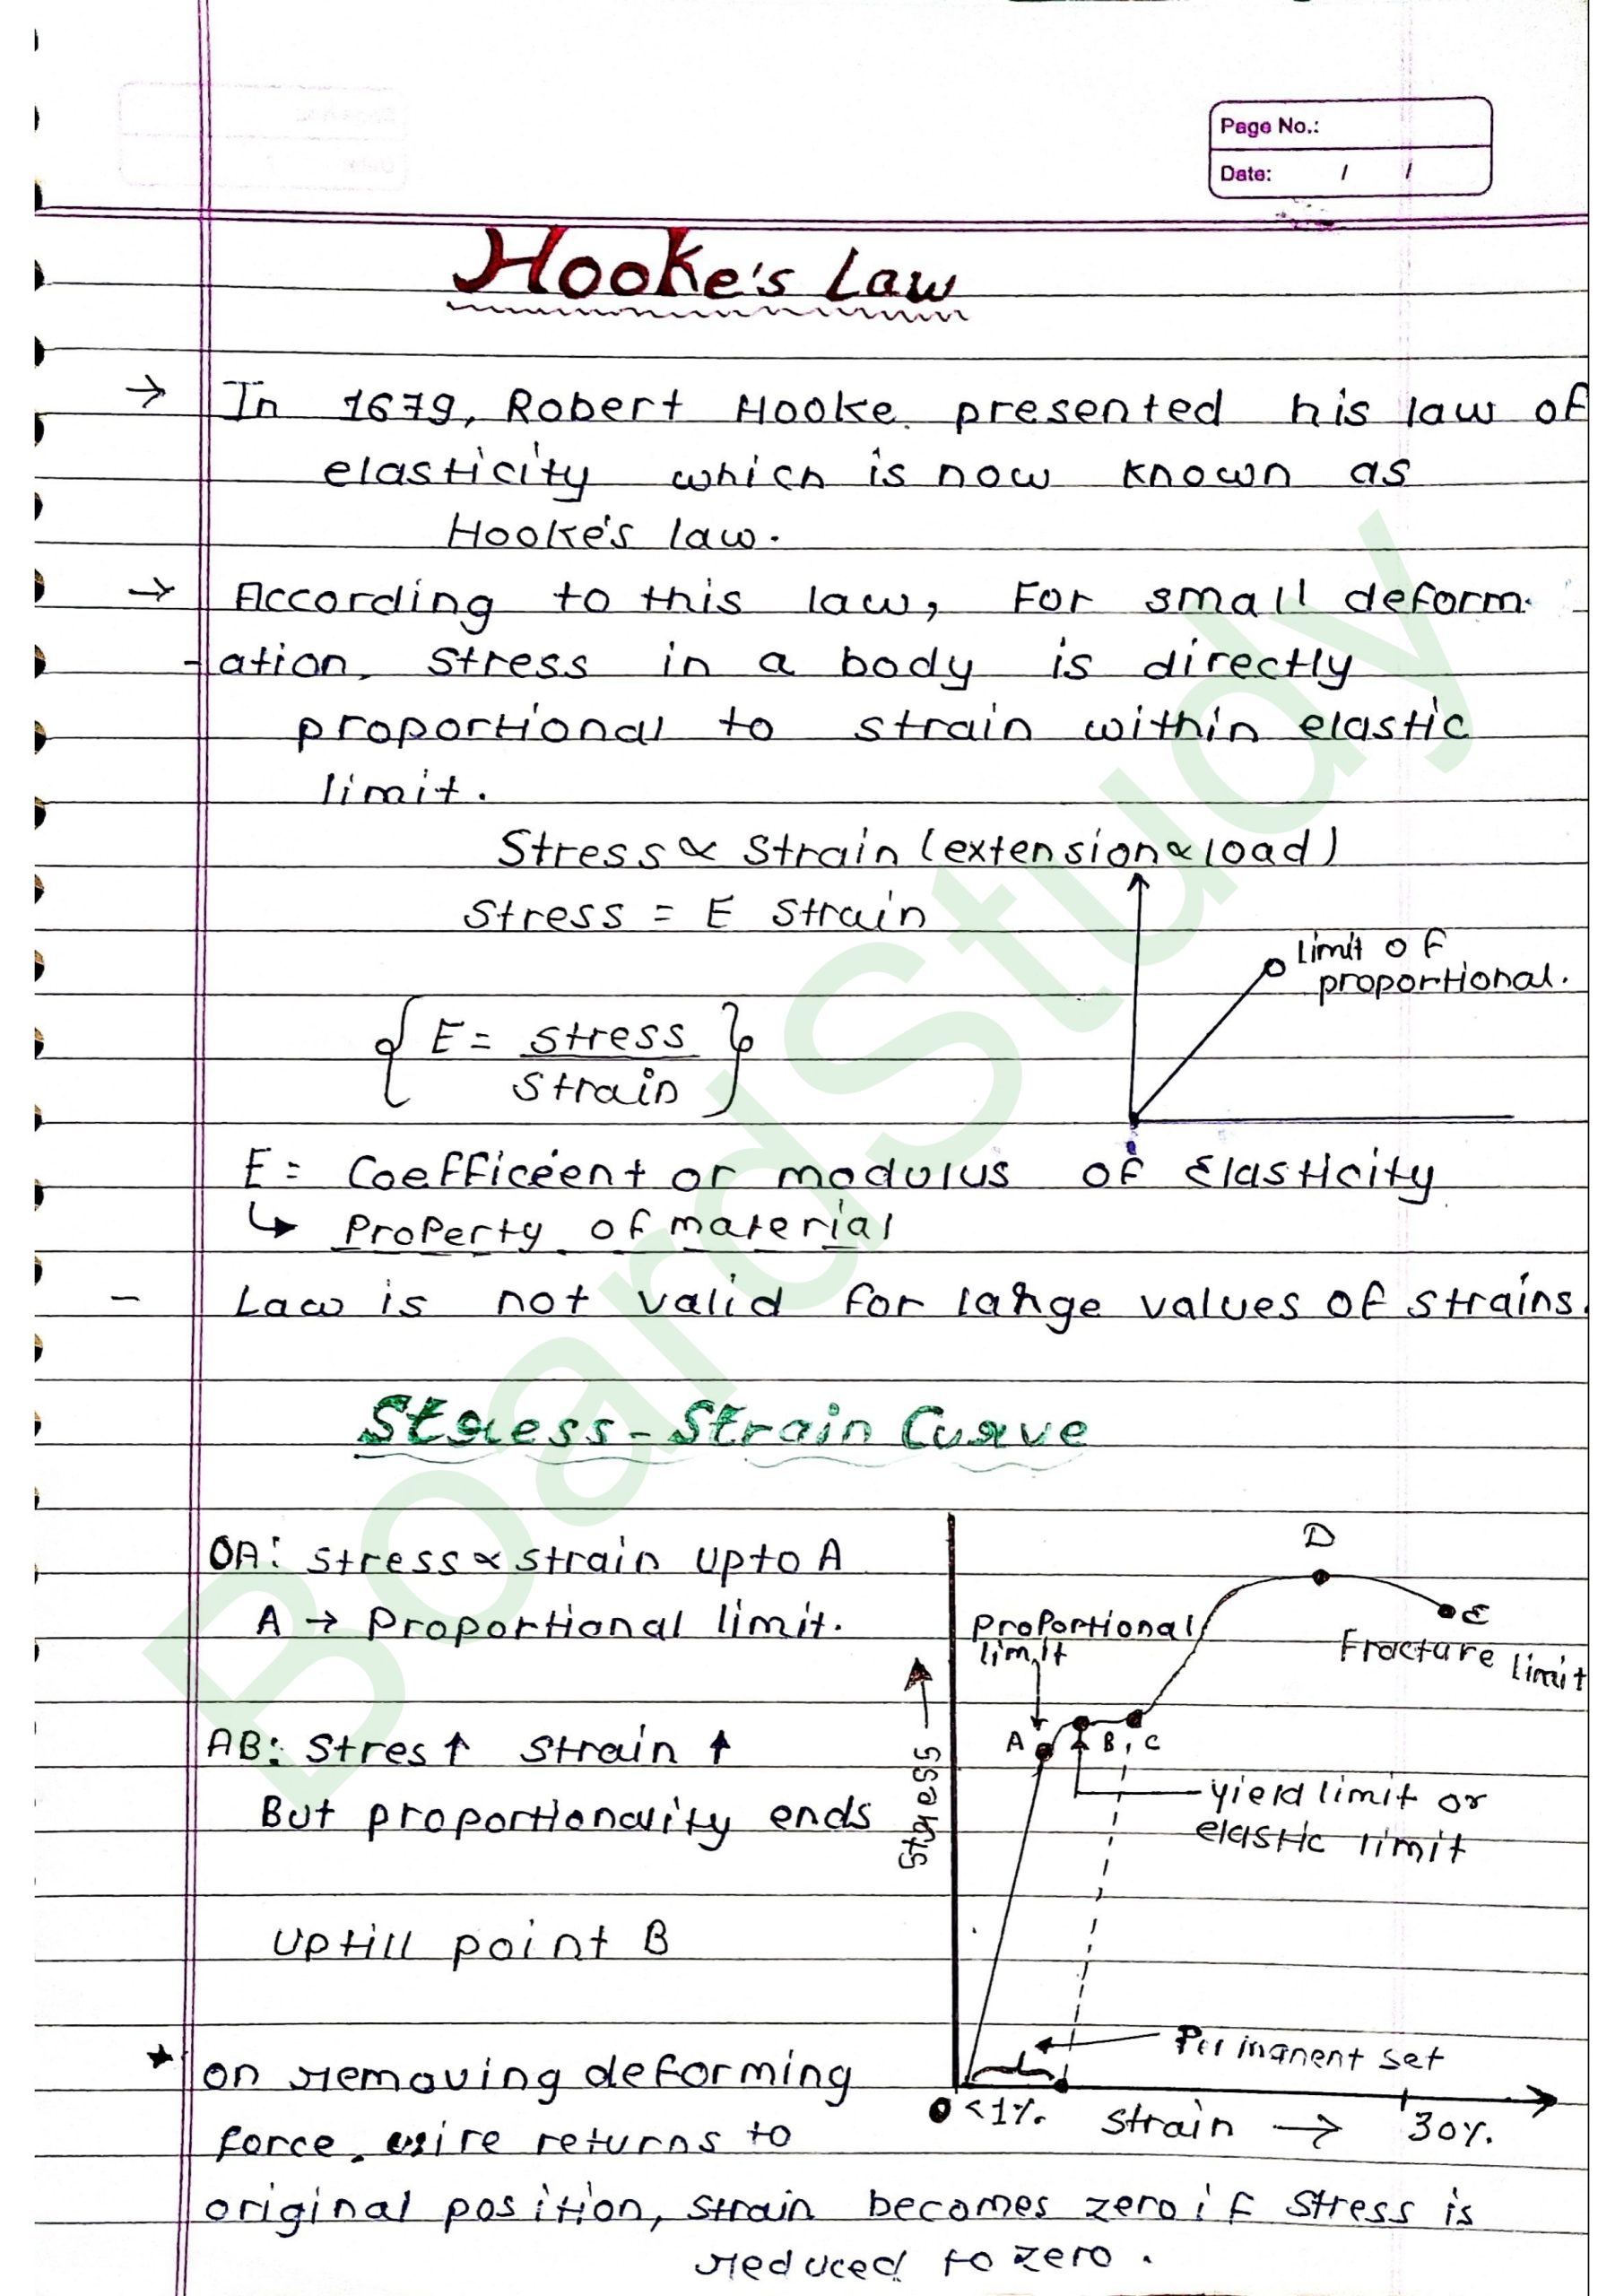 Page No.:
Date: / /
Hooke's Law
→ In 1679, Robert Hooke presented his law of
elasticity which is now known as
Hooke's law.
→ According to this law, For small deform-
-ation, stress in a body is directly
proportional to strain within elastic
limit.
Stress ∝ Strain (extension ∝ load)
Stress = E Strain
limit of
proportional.
{ E = stress
Strain }
E = Coefficéent or modulus of Elasticity
↳ Property of material
- Law is not valid for large values of strains.
Stress-Strain Curve
OA: stress ∝ strain upto A
A → Proportional limit.
AB: Stres ↑ Strain ↑
But proportionality ends
uptill point B
D
E
Fracture limit
Proportional
limit
A B, C
yield limit or
elastic limit
Stress →
Permanent set
O <1%. Strain → 30%.
★ on removing deforming
force, wire returns to
original position, strain becomes zero if stress is
reduced to zero.
BoardStudy